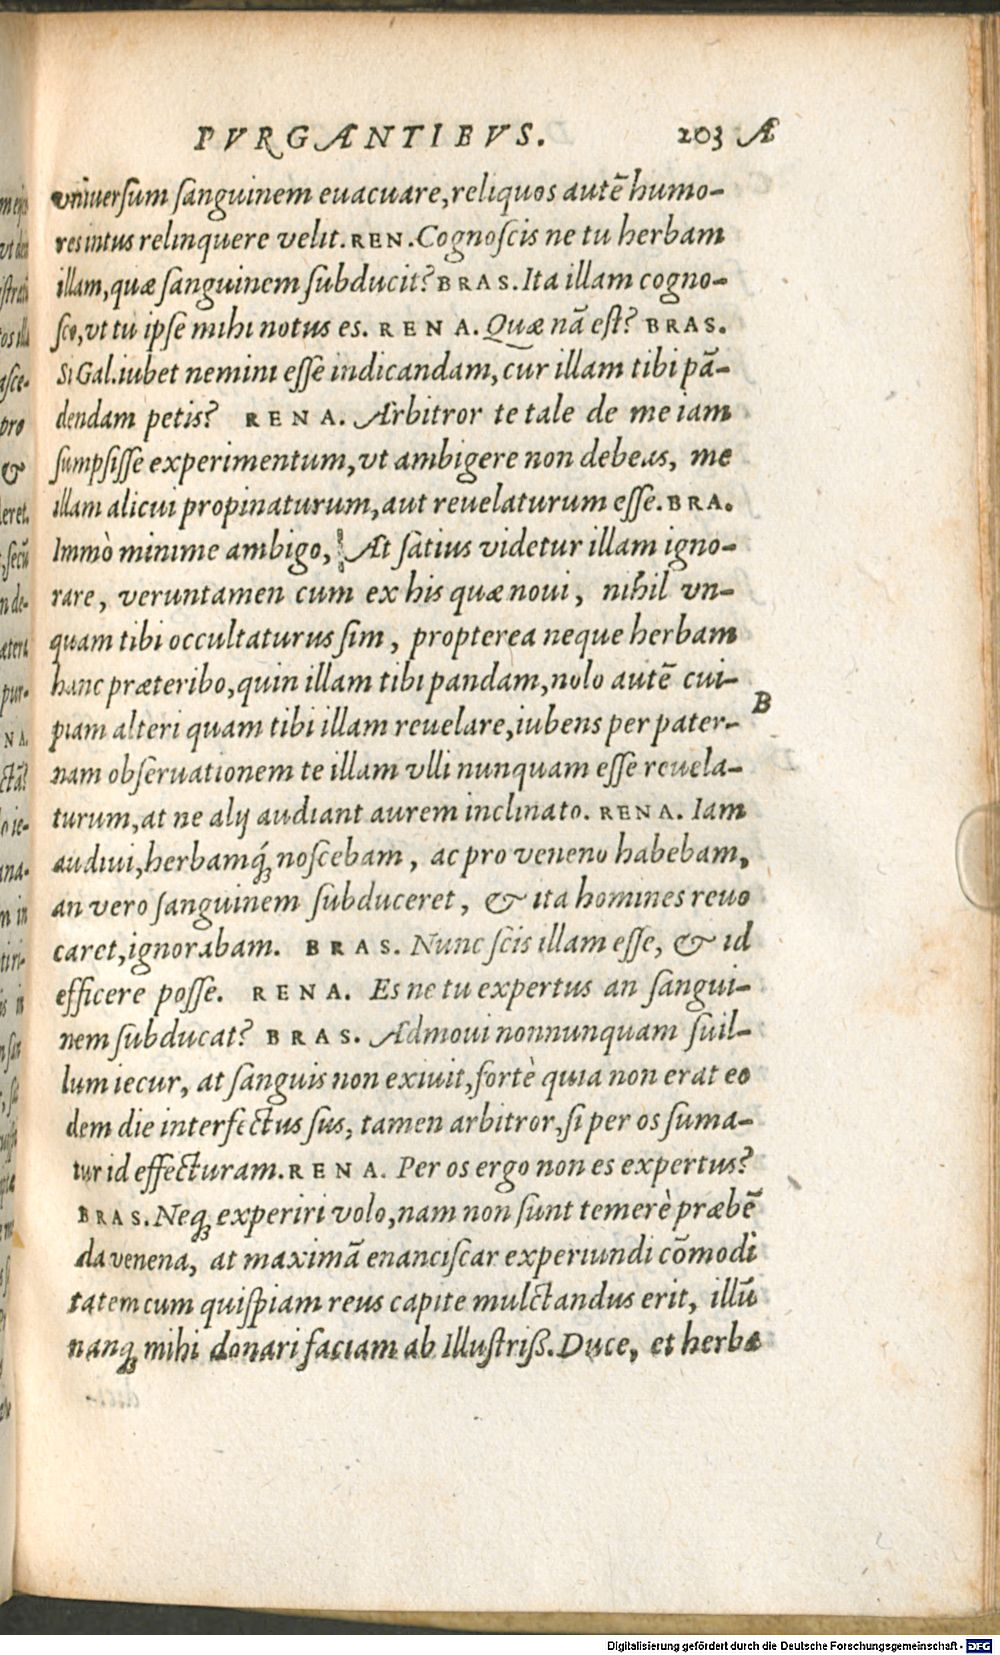 PVRGANTIBVS. 203 A
vniuersum sanguinem euacuare, reliquos autē humo-
res intus relinquere velit. REN. Cognoscis ne tu herbam
illam, quæ sanguinem subducit? BRAS. Ita illam cogno-
sco, vt tu ipse mihi notus es. RENA. Quæ nā est? BRAS.
Si Gal. iubet nemini esse indicandam, cur illam tibi pā-
dendam petis? RENA. Arbitror te tale de me iam
sumpsisse experimentum, vt ambigere non debeas, me
illam alicui propinaturum, aut reuelaturum esse. BRA.
Immò minime ambigo, At satius videtur illam igno-
rare, veruntamen cum ex his quæ noui, nihil vn-
quam tibi occultaturus sim, propterea neque herbam
hanc præteribo, quin illam tibi pandam, nolo autē cui-
B
piam alteri quam tibi illam reuelare, iubens per pater-
nam obseruationem te illam vlli nunquam esse reuela-
turum, at ne alij audiant aurem inclinato. RENA. Iam
audiui, herbamq́; noscebam, ac pro veneno habebam,
an vero sanguinem subduceret, & ita homines reuo
caret, ignorabam. BRAS. Nunc scis illam esse, & id
efficere posse. RENA. Es ne tu expertus an sangui-
nem subducat? BRAS. Admoui nonnunquam suil-
lum iecur, at sanguis non exiuit, fortè quia non erat eo
dem die interfectus sus, tamen arbitror, si per os suma-
tur id effecturam. RENA. Per os ergo non es expertus?
BRAS. Neq; experiri volo, nam non sunt temerè præbē
da venena, at maximā enanciscar experiundi cōmodi
tatem cum quispiam reus capite mulctandus erit, illū
nanq; mihi donari faciam ab Illustriß. Duce, et herbæ
Digitalisierung gefördert durch die Deutsche Forschungsgemeinschaft - DFG